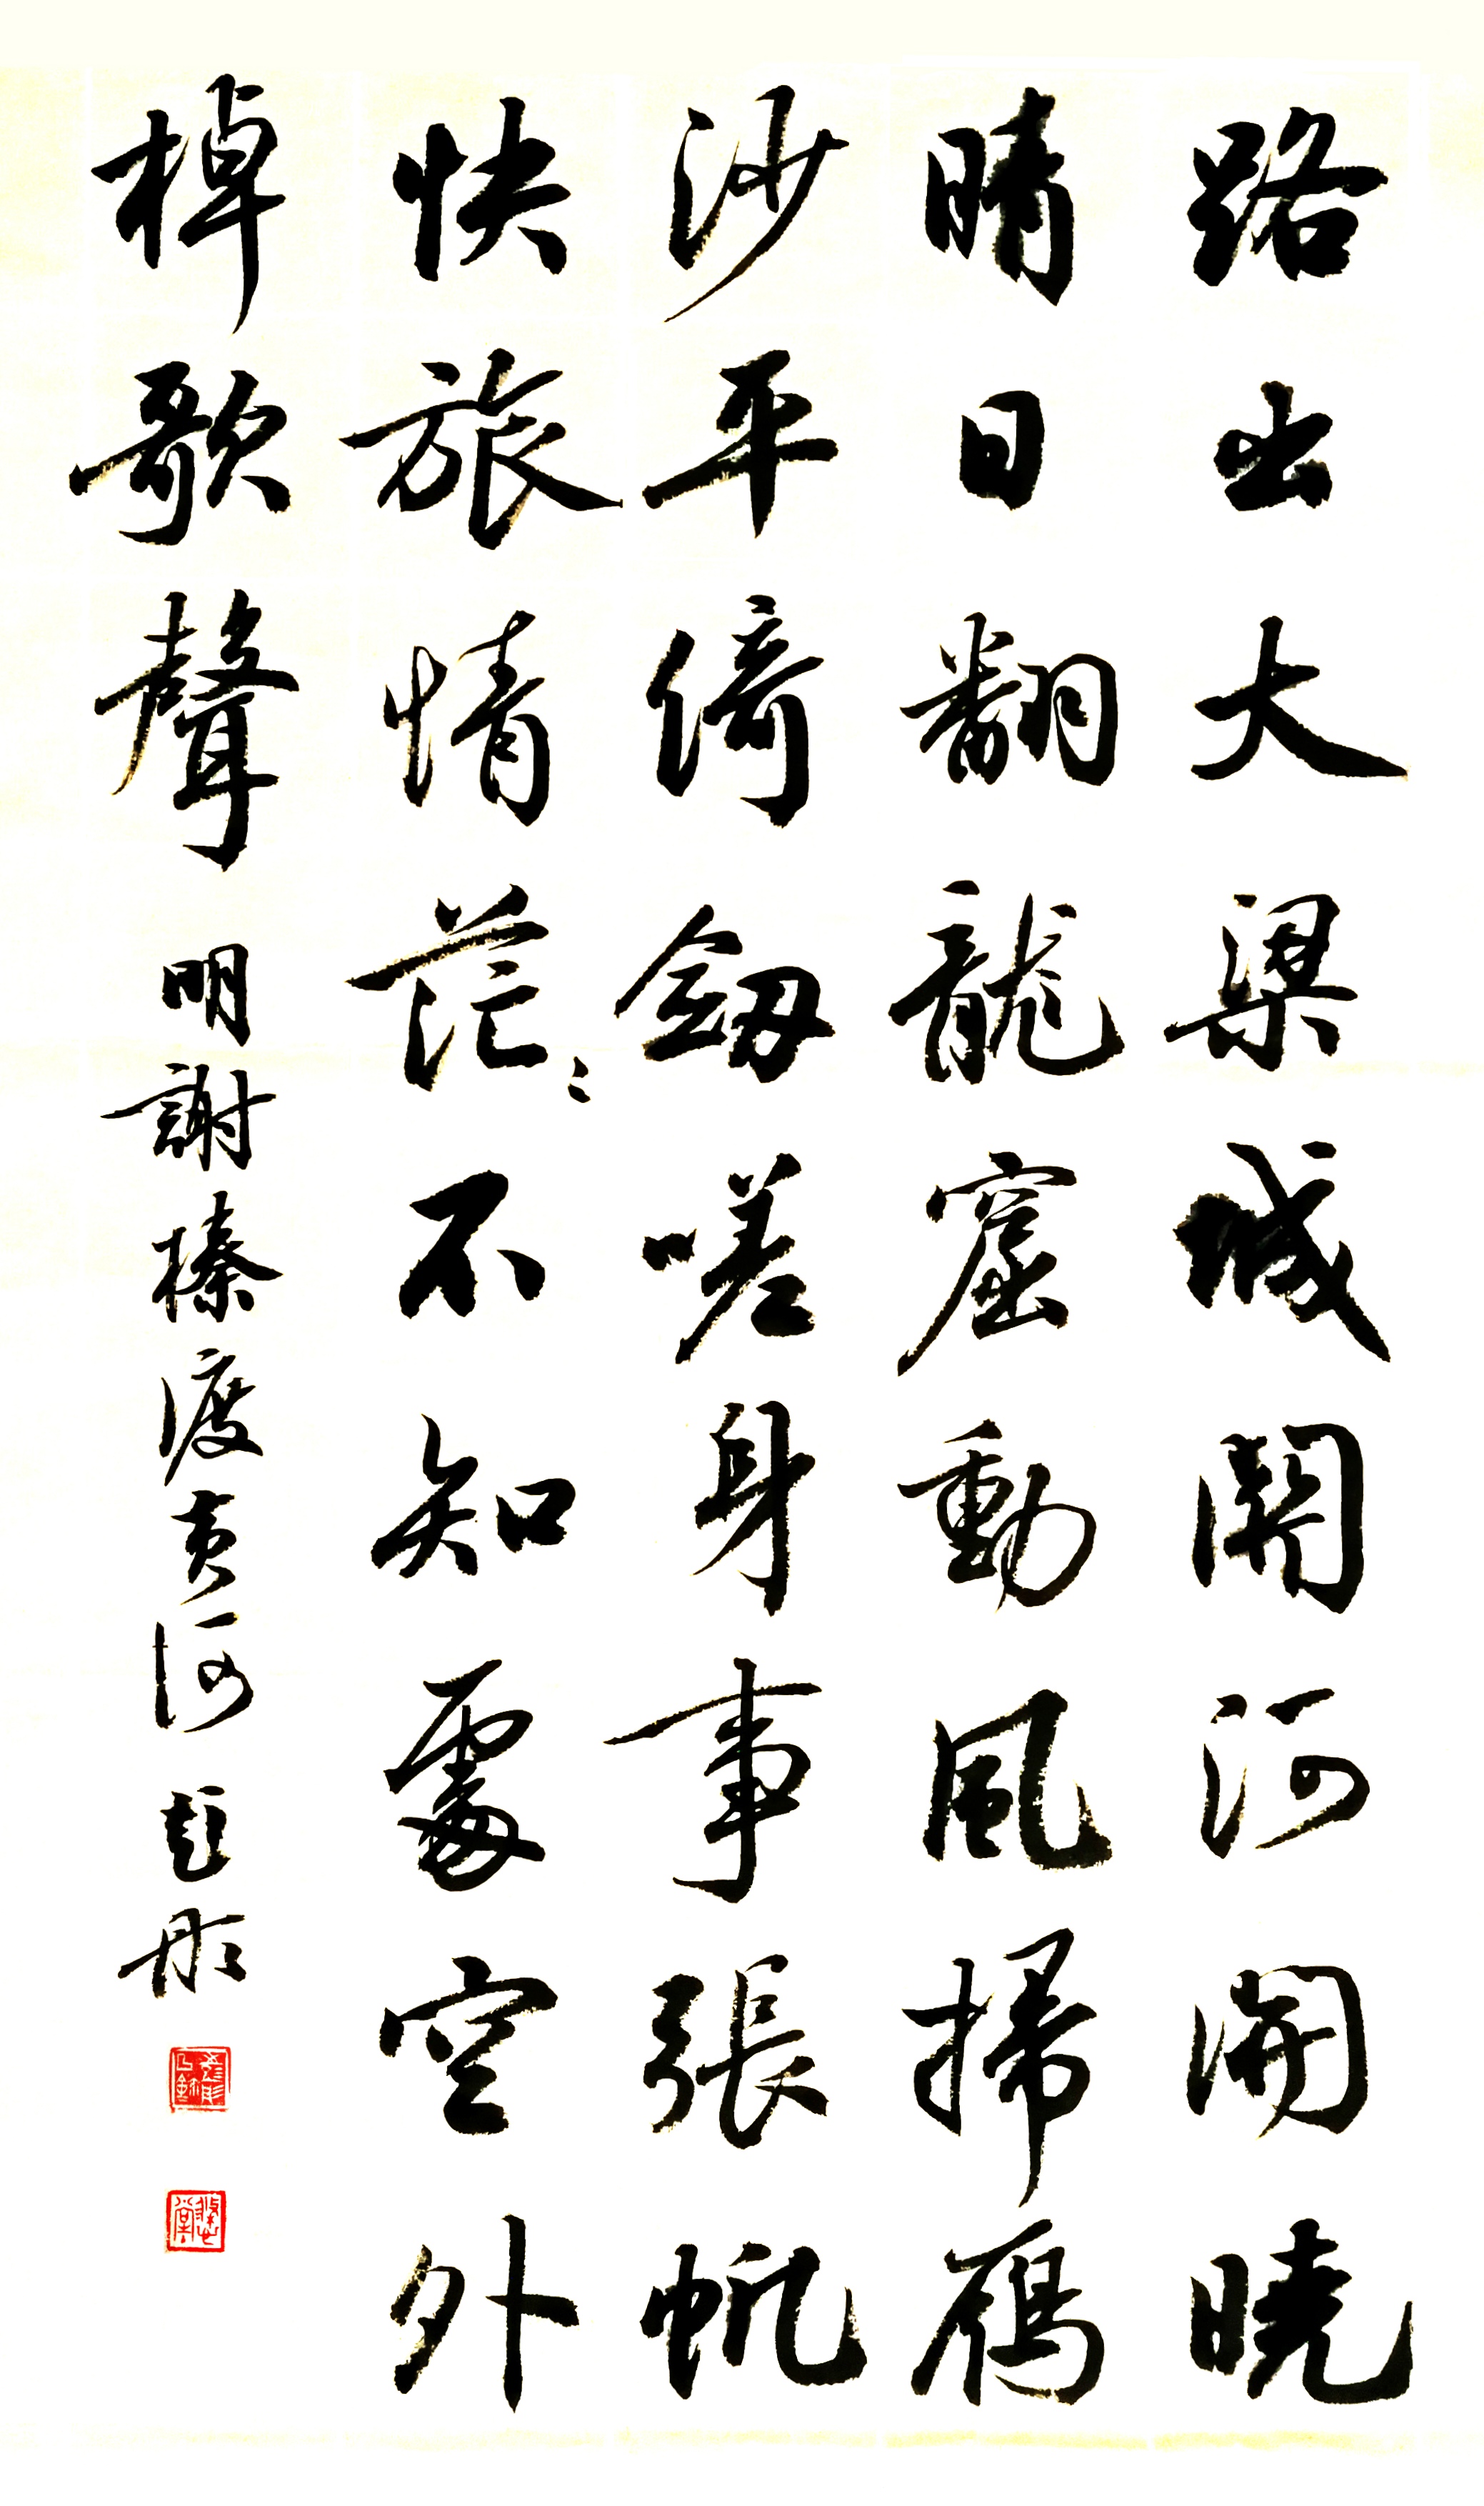 路出大梁城關河開曉
晴日翻龍窟動風掃鴈
沙平倚劍嗟身事張帆
快旅情茫〻不知處空外
棹歌聲 明謝榛渡黃河